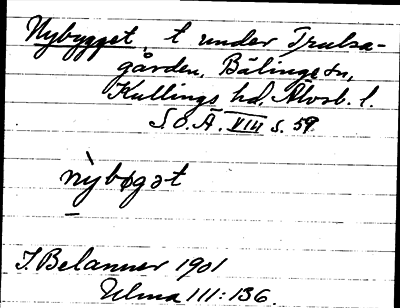 Nybygget, t under Trulsa-
gården, Bälinge sn,
Kullings hd, Älvsb. l.
S.O.Ä. VIII s. 59.
nỳbǫgǝt
J. Belanner 1901
Ulma 111:136.